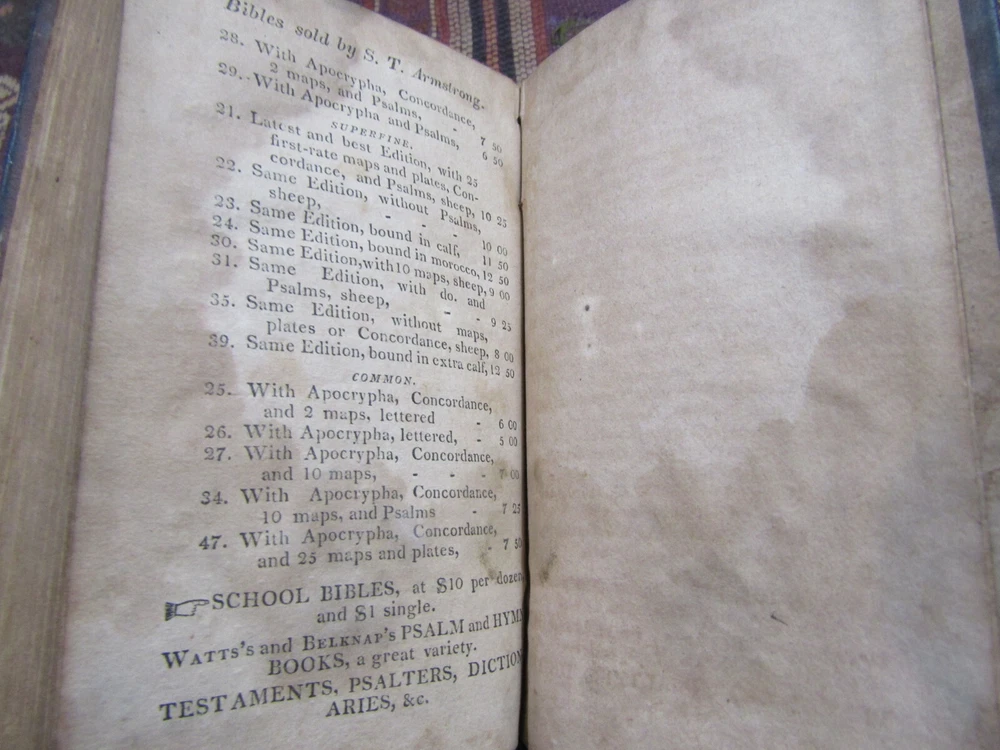 Bibles sold by S. T. Armstrong.
28. With Apocrypha, Concordance,
2 maps, and Psalms, - 7 50
29. With Apocrypha and Psalms, 6 50
SUPERFINE.
21. Latest and best Edition, with 25
first-rate maps and plates, Con-
cordance, and Psalms, sheep, 10 25
22. Same Edition, without Psalms,
sheep, - - - 10 00
23. Same Edition, bound in calf, 11 50
24. Same Edition, bound in morocco, 12 50
30. Same Edition, with 10 maps, sheep, 9 00
31. Same Edition, with do. and
Psalms, sheep, - - 9 25
35. Same Edition, without maps,
plates or Concordance, sheep, 8 00
39. Same Edition, bound in extra calf, 12 50
COMMON.
25. With Apocrypha, Concordance,
and 2 maps, lettered - 6 00
26. With Apocrypha, lettered, - 5 00
27. With Apocrypha, Concordance,
and 10 maps, - - - 7 00
34. With Apocrypha, Concordance,
10 maps, and Psalms - 7 25
47. With Apocrypha, Concordance,
and 25 maps and plates, - 7 50
☞SCHOOL BIBLES, at $10 per dozen,
and $1 single.
WATTS's and BELKNAP's PSALM and HYMN
BOOKS, a great variety.
TESTAMENTS, PSALTERS, DICTION
ARIES, &c.